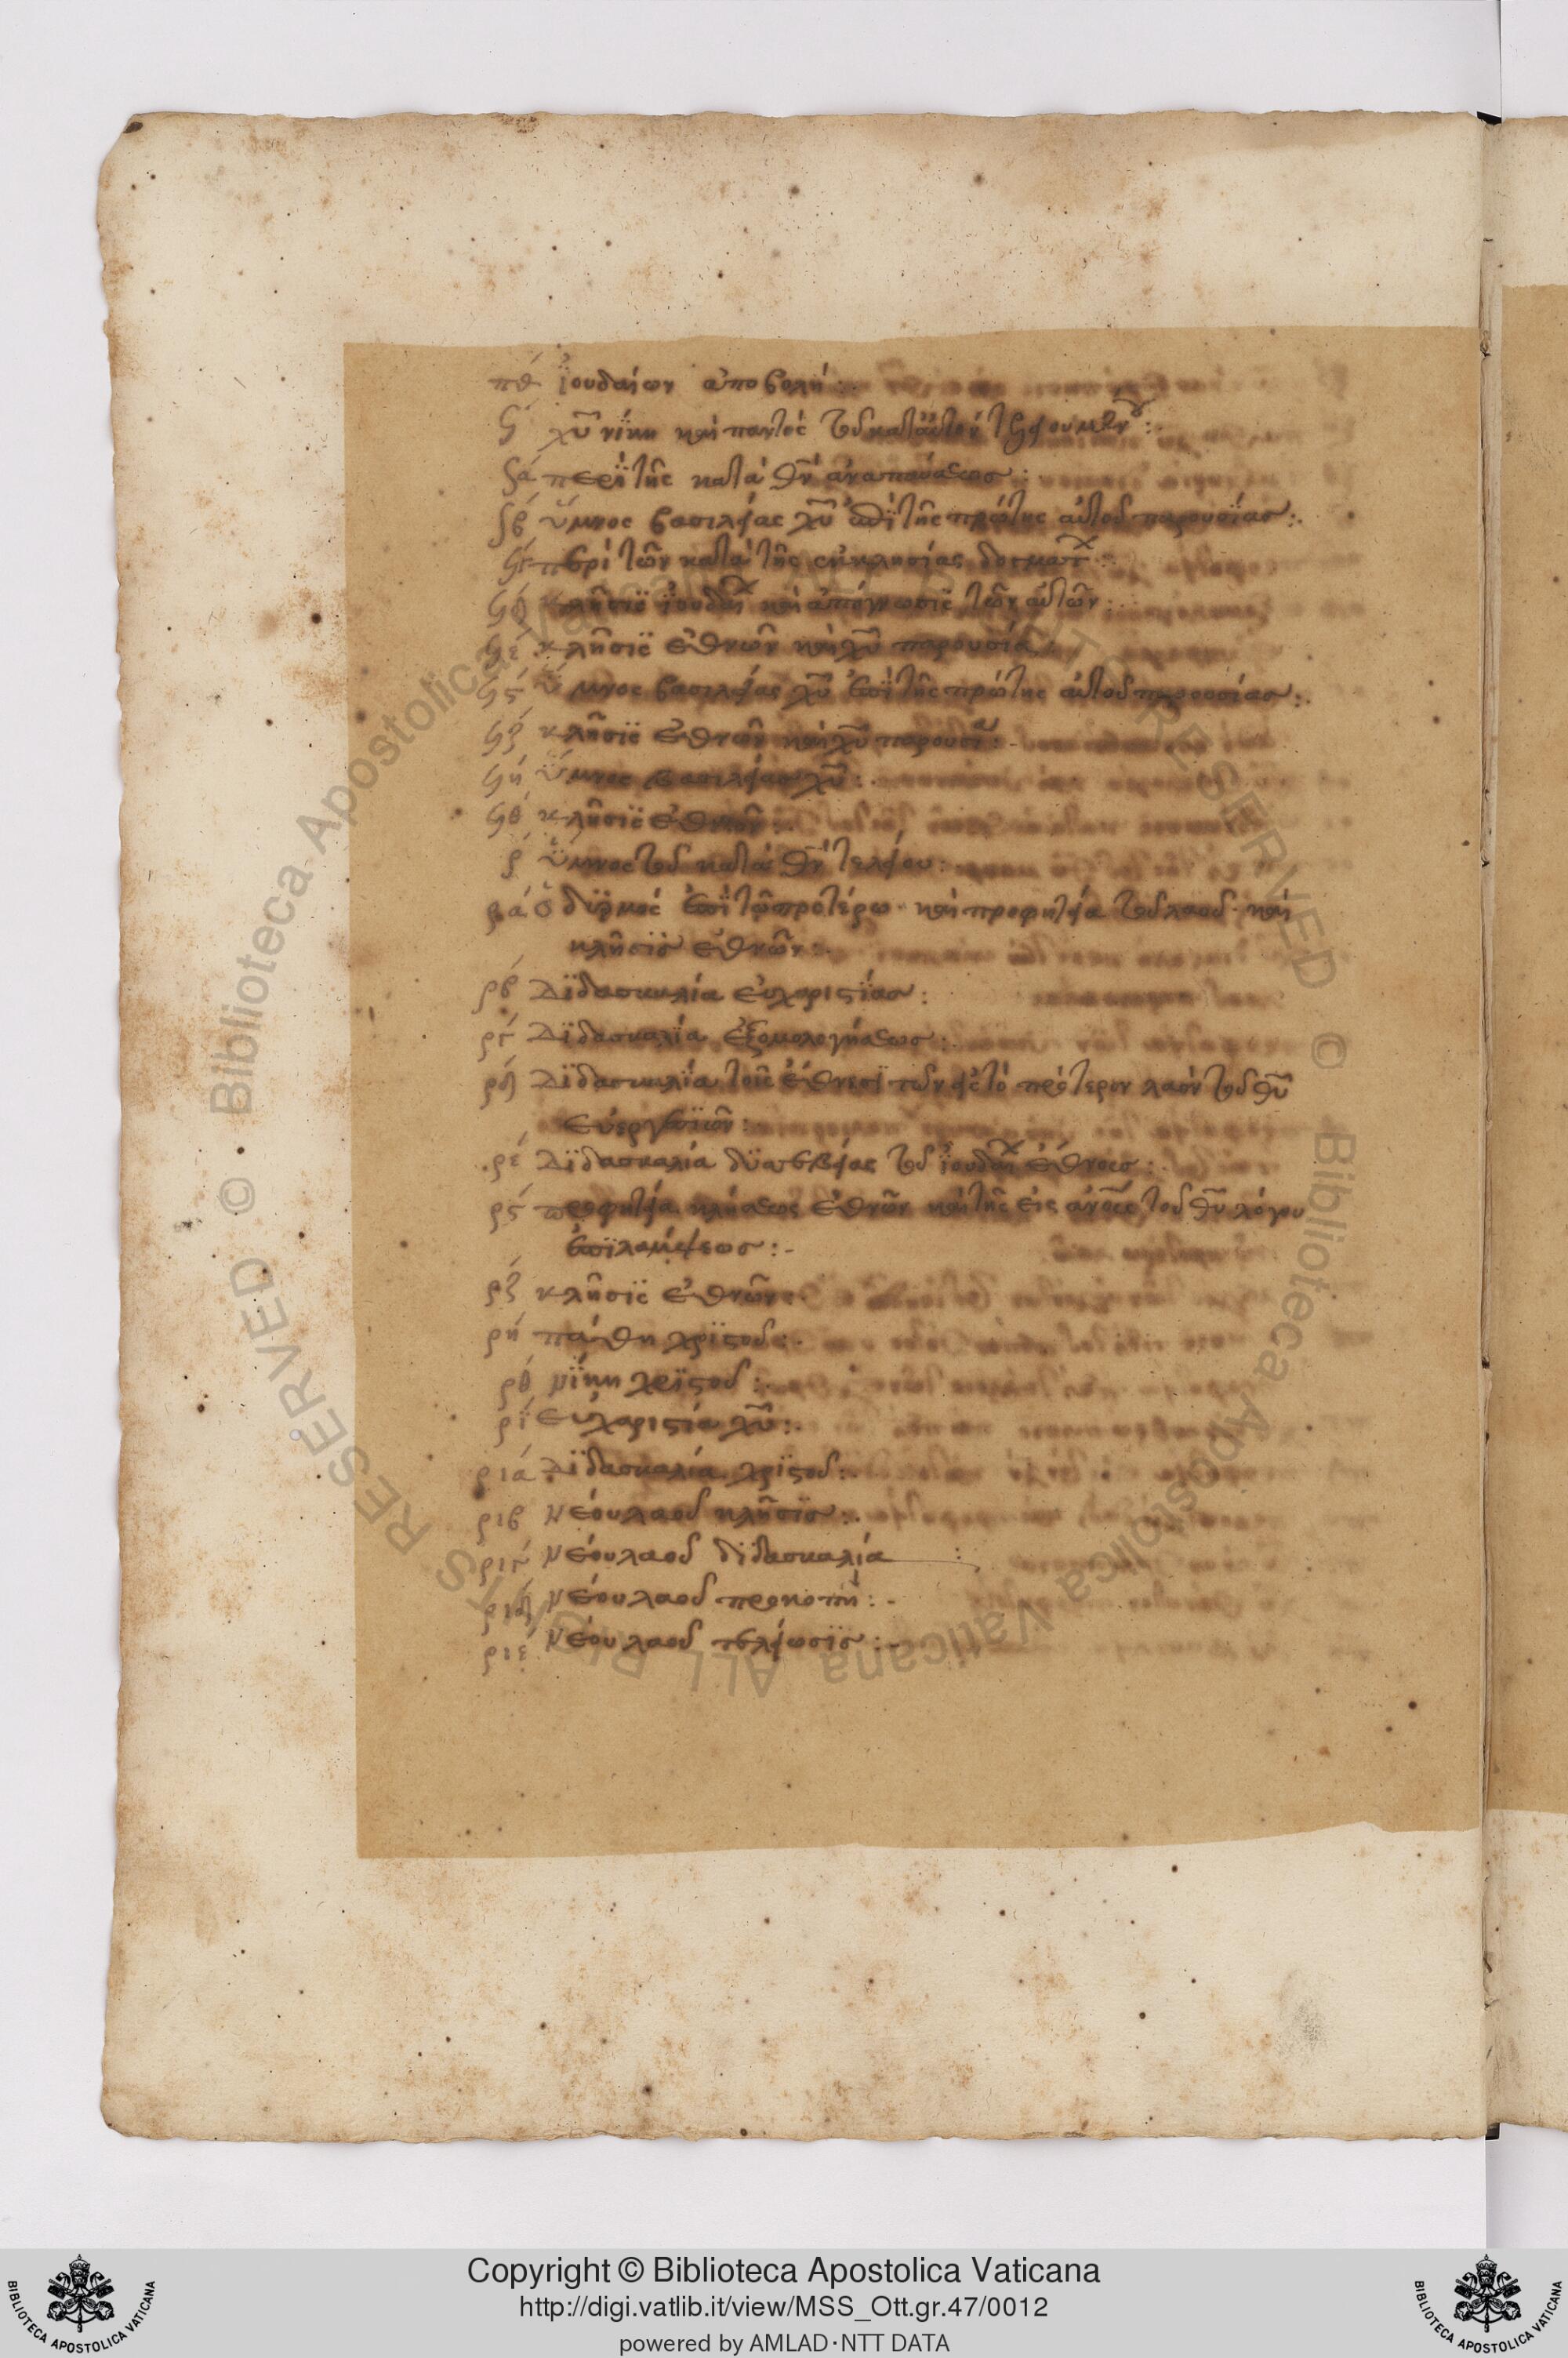 πθ ϊουδαίων αποβολή:
ϟ χῦ νίκη καὶ παντὸς τοῦ κατ αὐτὸν τελειουμένου:
ϟα περὶ τῆς κατὰ θν̄ ἀναπαύσεως:
ϟβ ὕμνος βασιλείας χῦ ἐπὶ τῆς πρώτης αὐτοῦ παρουσίας:
ϟγ περὶ τῶν κατὰ τῆς ἐκκλησίας
ϟδ κλῆσις ϊουδαί καὶ ἀπόγνωσις τῶν αὐτῶν:
ϟε κλῆσις ἐθνῶν καὶ χῦ παρουσία
ϟϛ ὕμνος βασιλείας χῦ ἐπὶ τῆς πρώτης αὐτοῦ παρουσίας:
ϟζ κλῆσις ἐθνῶν καὶ χῦ παρουσία:
ϟη ὕμνος βασιλείας χῦ:
ϟθ κλῆσις ἐθνῶν:
ρ ὕμνος τοῦ κατὰ θν̄ τελείου:
ρα ὀδυρμός ἐπὶ τῶ προτέρω καὶ προφητεία τοῦ λαοῦ καὶ
κλῆσις ἐθνῶν:
ρβ Διδασκαλία εὐχαριστίας:
ργ Διδασκαλία ἐξομολογήσεως:
ρδ Διδασκαλία τοῖς ἔθνεσι τῶν εἰς τὸ πρότερον λαὸν τοῦ θῦ
εὐεργεσιῶν:
ρε Διδασκαλία δυσσεβείας τοῦ ϊουδαί ἔθνους:
ρϛ προφητεία κλήσεως ἐθνῶν καὶ τῆς εἰς αν̄ους τοῦ θῦ λόγου
ἐπιλάμψεως:
ρζ κλῆσις ἐθνῶν
ρη πάθη χριστοῦ:
ρθ νίκη χριστοῦ:
ρι Εὐχαριστία χῦ:
ρια Διδασκαλία χριστοῦ:
ριβ Νέου λαοῦ κλῆσις:
ριγ Νέου λαοῦ διδασκαλία:
ριδ Νέου λαοῦ προκοπή:
ριε Νέου λαοῦ τελείωσις:
Biblioteca Apostolica Vaticana ALL RIGHTS RESERVED © Biblioteca Apostolica Vaticana ALL RIGHTS RESERVED ©
Copyright © Biblioteca Apostolica Vaticana
http://digi.vatlib.it/view/MSS_Ott.gr.47/0012
powered by AMLAD·NTT DATA
BIBLIOTECA APOSTOLICA VATICANA
BIBLIOTECA APOSTOLICA VATICANA